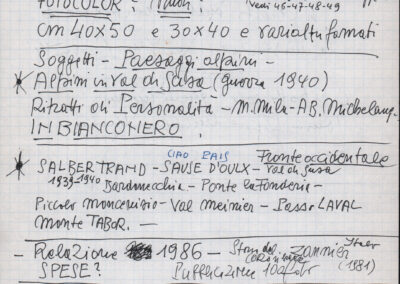 FOTOCOLOR:
Vedi 46-47-48-49
cm 40x50 e 30x40 e varialtri formati
Soggetti - Paesaggi alpini -
Alpini in Val di Susa (guerra 1940)
Ritratti di Personalità - M. Mila - A.B. Michelang.
IN BIANCONERO.
CIAO PAIS Fronte occidentale
SALBERTRAND - SAUSE D'OULX - Val di Susa
1939-1940 Bardonecchia - Ponte la Fonderie -
Piccolo Moncenisio - Val Meinier - Passo LAVAL
Monte TABOR. -
- Relazione 1986 - Zannier
SPESE? Pubblicazione 10 foto (1981)